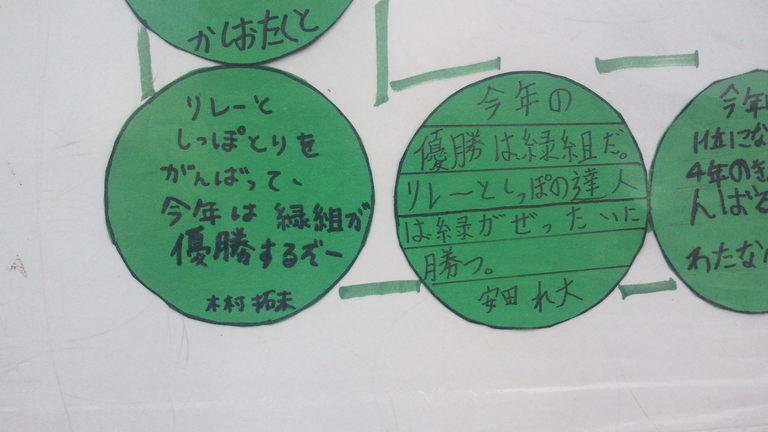 かしおたくと
リレーと
しっぽとりを
がんばって、
今年は 緑組が
優勝するぞー
木村 拓未
今年の
優勝は緑組だ。
リレーとしっぽの達人
は緑がぜったいに
勝つ。
安田 れ大
今年
1位にな
4年の
んばる
わたな